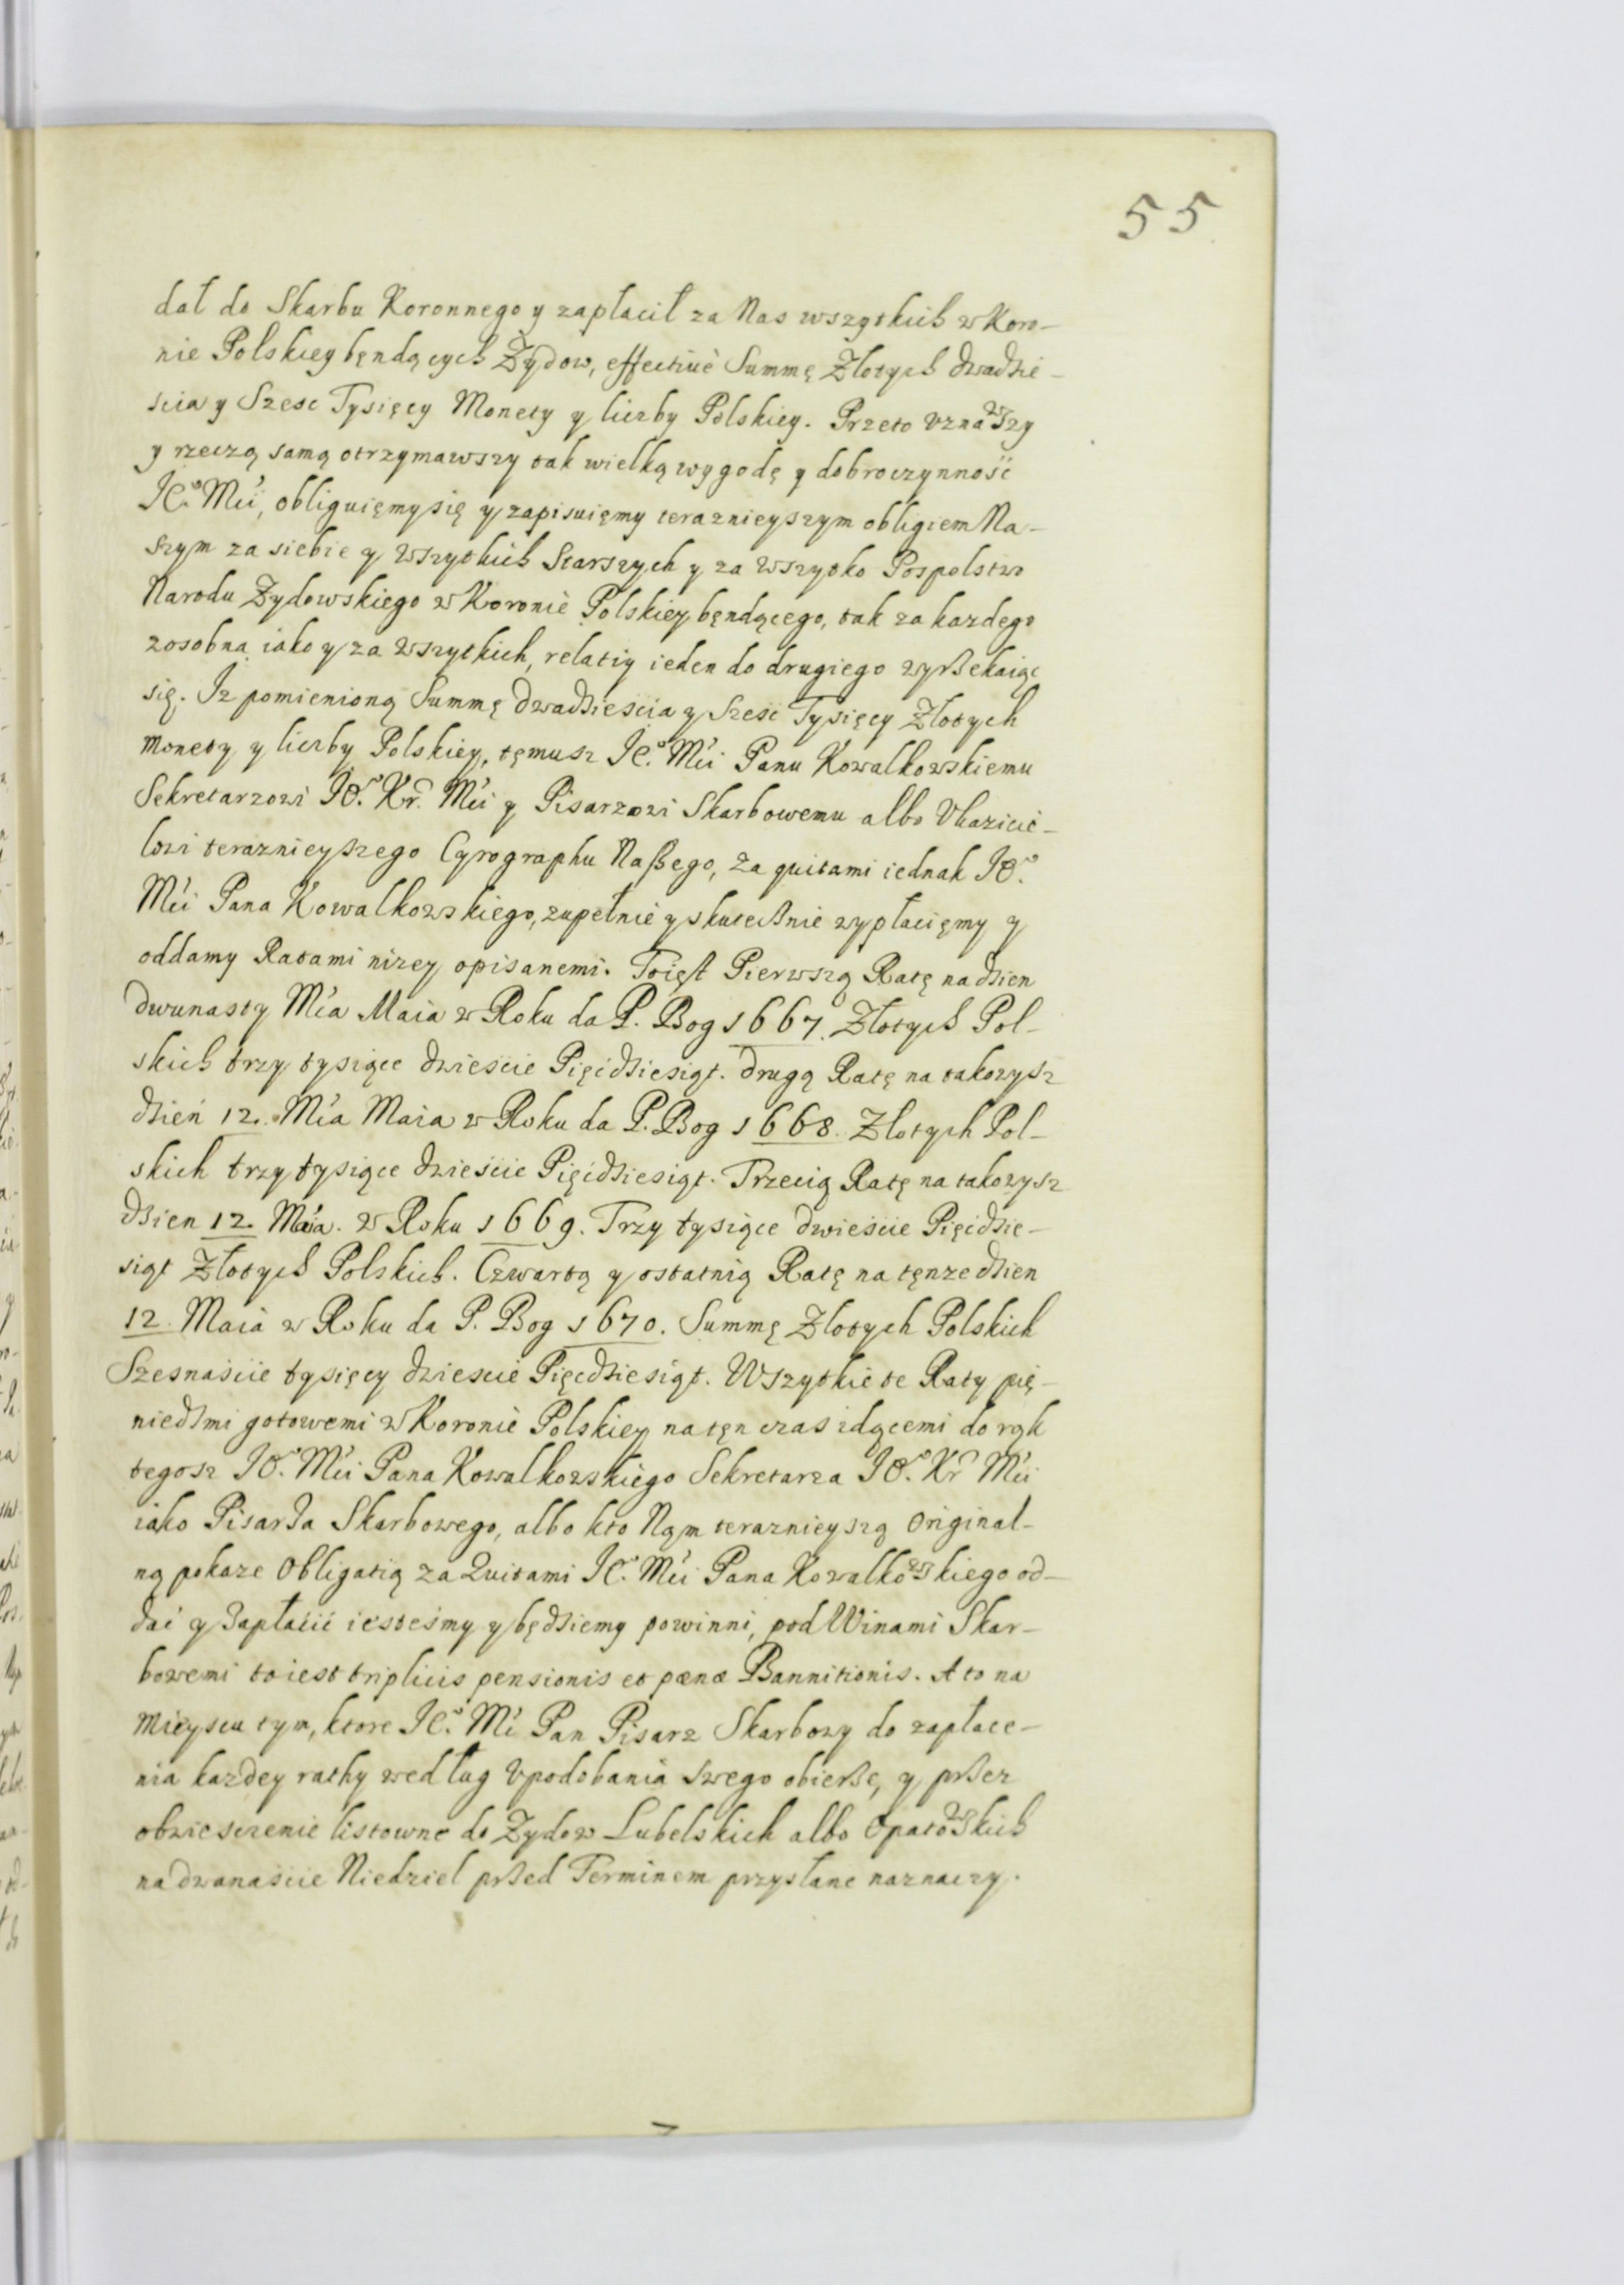 55
dał do Skarbu Koronnego y zapłacił za Nas wszytkich w Koro-
nie Polskiey bęndących Żydow, effectiuè Summę Złotych dwadzie-
scia y Szesc Tysięcy Monety y liczby Polskiey. Przeto vznawszy
y rzeczą samą otrzymawszy tak wielką wygodę y dobroczynność
Je̊. Mći, obliguięmy się y zapisuięmy teraznieyszym obligiem Na-
szym za siebie y wszytkich Starszych y za wszytko Pospolstwo
Narodu Zydowskiego w Koronie Polskiey bęndącego, tak za kazdego
zosobna iako y za wszytkich, relatiy ieden do drugiego wyrzekaiąc
się. Iz pomienioną Summę dwadziescia y Szesć Tysięcy Złotych
Monety y liczby Polskiey, tęmusz Je̊. Mći Panu Kowalkowskiemu
Sekretarzowi Jo̊. Kr. Mći y Pisarzowi Skarbowemu albo Vkazicie-
lowi teraznieyszego Cyrographu Naszego, za quitami iednak Jo̊.
Mći Pana Kowalkowskiego, zupełnie y skutecznie wypłacięmy y
oddamy Ratami nizey opisanemi. Toięst Pierwszą Ratę na dzien
dwunasty Mća Maia w Roku da P. Bog 1667. Złotych Pol-
skich trzy tysiące dwiescie Pięćdziesiąt. drugą Ratę na takowysz
dzień 12. Mća Maia w Roku da P. Bog 1668. Złotych Pol-
skich trzy tysiące dwieście Pięćdziesiąt. Trzecią Ratę na takowysz
dzien 12. Maia. w Roku 1669. Trzy tysiące dwieście Pięćdzie-
siąt Złotych Polskich. Czwartą y ostatnią Ratę na tęnze dzien
12. Maia w Roku da P. Bog 1670. Summę Złotych Polskich
Szesnaście tysięcy dwiescie Pięcdziesiąt. Wszytkie te Raty pię-
niedzmi gotowemi w Koronie Polskiey na tęn czas idącemi do rąk
tegosz Jo̊. Mći Pana Kowalkowskiego Sekretarza Jo̊. Kr Mći
iako Pisarza Skarbowego, albo kto Nąm teraznieyszą Original-
ną pokaze Obligatią za Quitami Je̊. Mći Pana Kowalkowskiego od-
dać y Zapłacić iesteśmy y będziemy powinni, pod Winami Skar-
bowemi to iest triplicis pensionis et pœnæ Bannitionis. A to na
Mieyscu tym, ktore Je̊. Mć Pan Pisarz Skarbowy do zapłace-
nia kazdey rathy według Vpodobania swego obierze, y przez
obwiesczenie listowne do Zydow Lubelskich albo Opatowskich
na dwanaście Niedziel przed Terminem przysłane naznaczy.